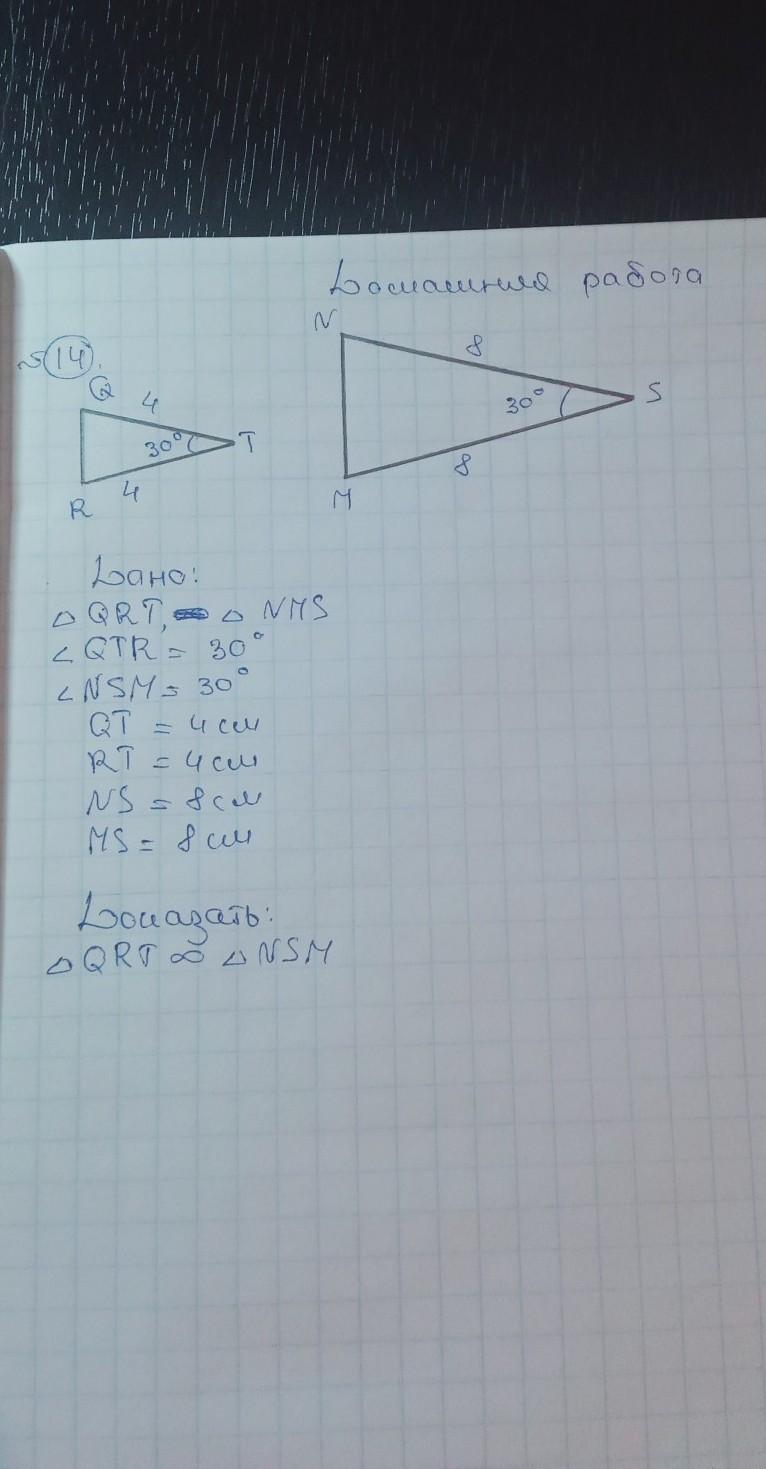 Домашняя работа
N
8
S
30°
8
M
№14.
Q
4
30°
T
4
R
Дано:
△ QRT, △ NMS
∠QTR = 30°
∠NSM = 30°
QT = 4 см
RT = 4 см
NS = 8 см
MS = 8 см
Доказать:
△ QRT ∞ △ NSM